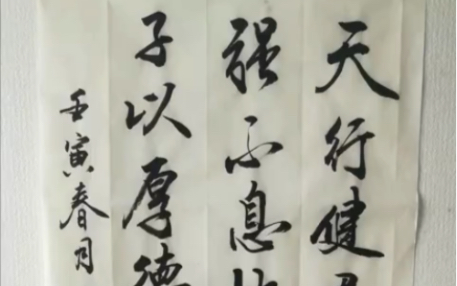 天行健
强不息
子以厚德
壬寅春月